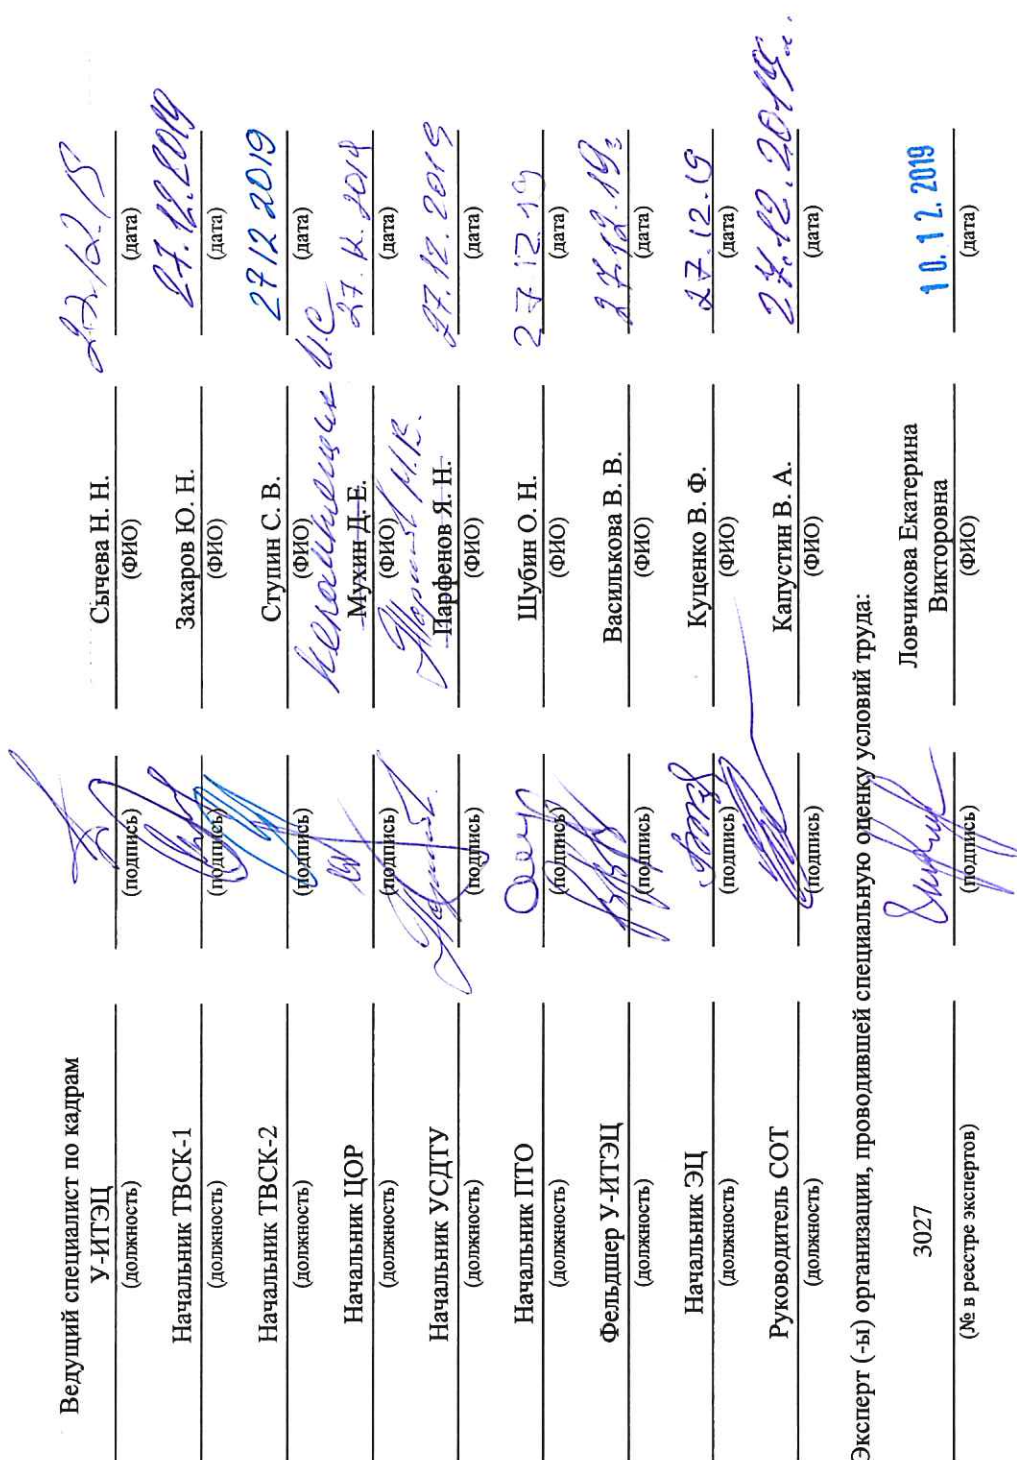 Ведущий специалист по кадрам
У-ИТЭЦ Сычева Н. Н.
(должность) (подпись) (ФИО) (дата)
Начальник ТВСК-1 Захаров Ю. Н. 27.12.2019
(должность) (подпись) (ФИО) (дата)
Начальник ТВСК-2 Ступин С. В. 27 12 2019
(должность) (подпись) (ФИО) (дата)
И.С
Начальник ЦОР Мухин Д. Е. 27.12.2019
(должность) (подпись) (ФИО) (дата)
М.В.
Начальник УСДТУ Парфенов Я. Н. 27.12.2019
(должность) (подпись) (ФИО) (дата)
Начальник ПТО Шубин О. Н. 27.12.19
(должность) (подпись) (ФИО) (дата)
Фельдшер У-ИТЭЦ Василькова В. В. 27.12.19г
(должность) (подпись) (ФИО) (дата)
Начальник ЭЦ Куценко В. Ф. 27.12.19
(должность) (подпись) (ФИО) (дата)
Руководитель СОТ Капустин В. А. 27.12.2019г.
(должность) (подпись) (ФИО) (дата)
Эксперт (-ы) организации, проводившей специальную оценку условий труда:
3027 Ловчикова Екатерина
Викторовна 10.12.2019
(№ в реестре экспертов) (подпись) (ФИО) (дата)